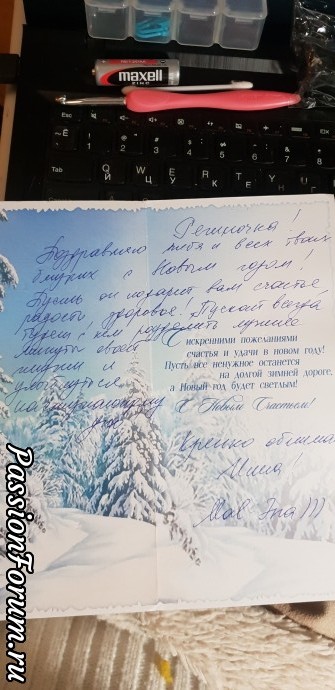 maxell
ZINC
Esc
Tab
Q
W
E
R
Й
Ц
У
К
Е
Региночка!
Поздравляю тебя и всех твоих
близких с Новым годом!
Пусть он подарит вам счастье
радость здоровье! Пускай всегда
будет с кем разделить лучшие
минуты своей
жизни и
улыбнуться
С искренними пожеланиями
счастья и удачи в новом году!
Пусть все ненужное останется
на долгой зимней дороге,
а Новый год будет светлым!
С Новым Счастьем!
Крепко обнимаю
PassionForum.ru